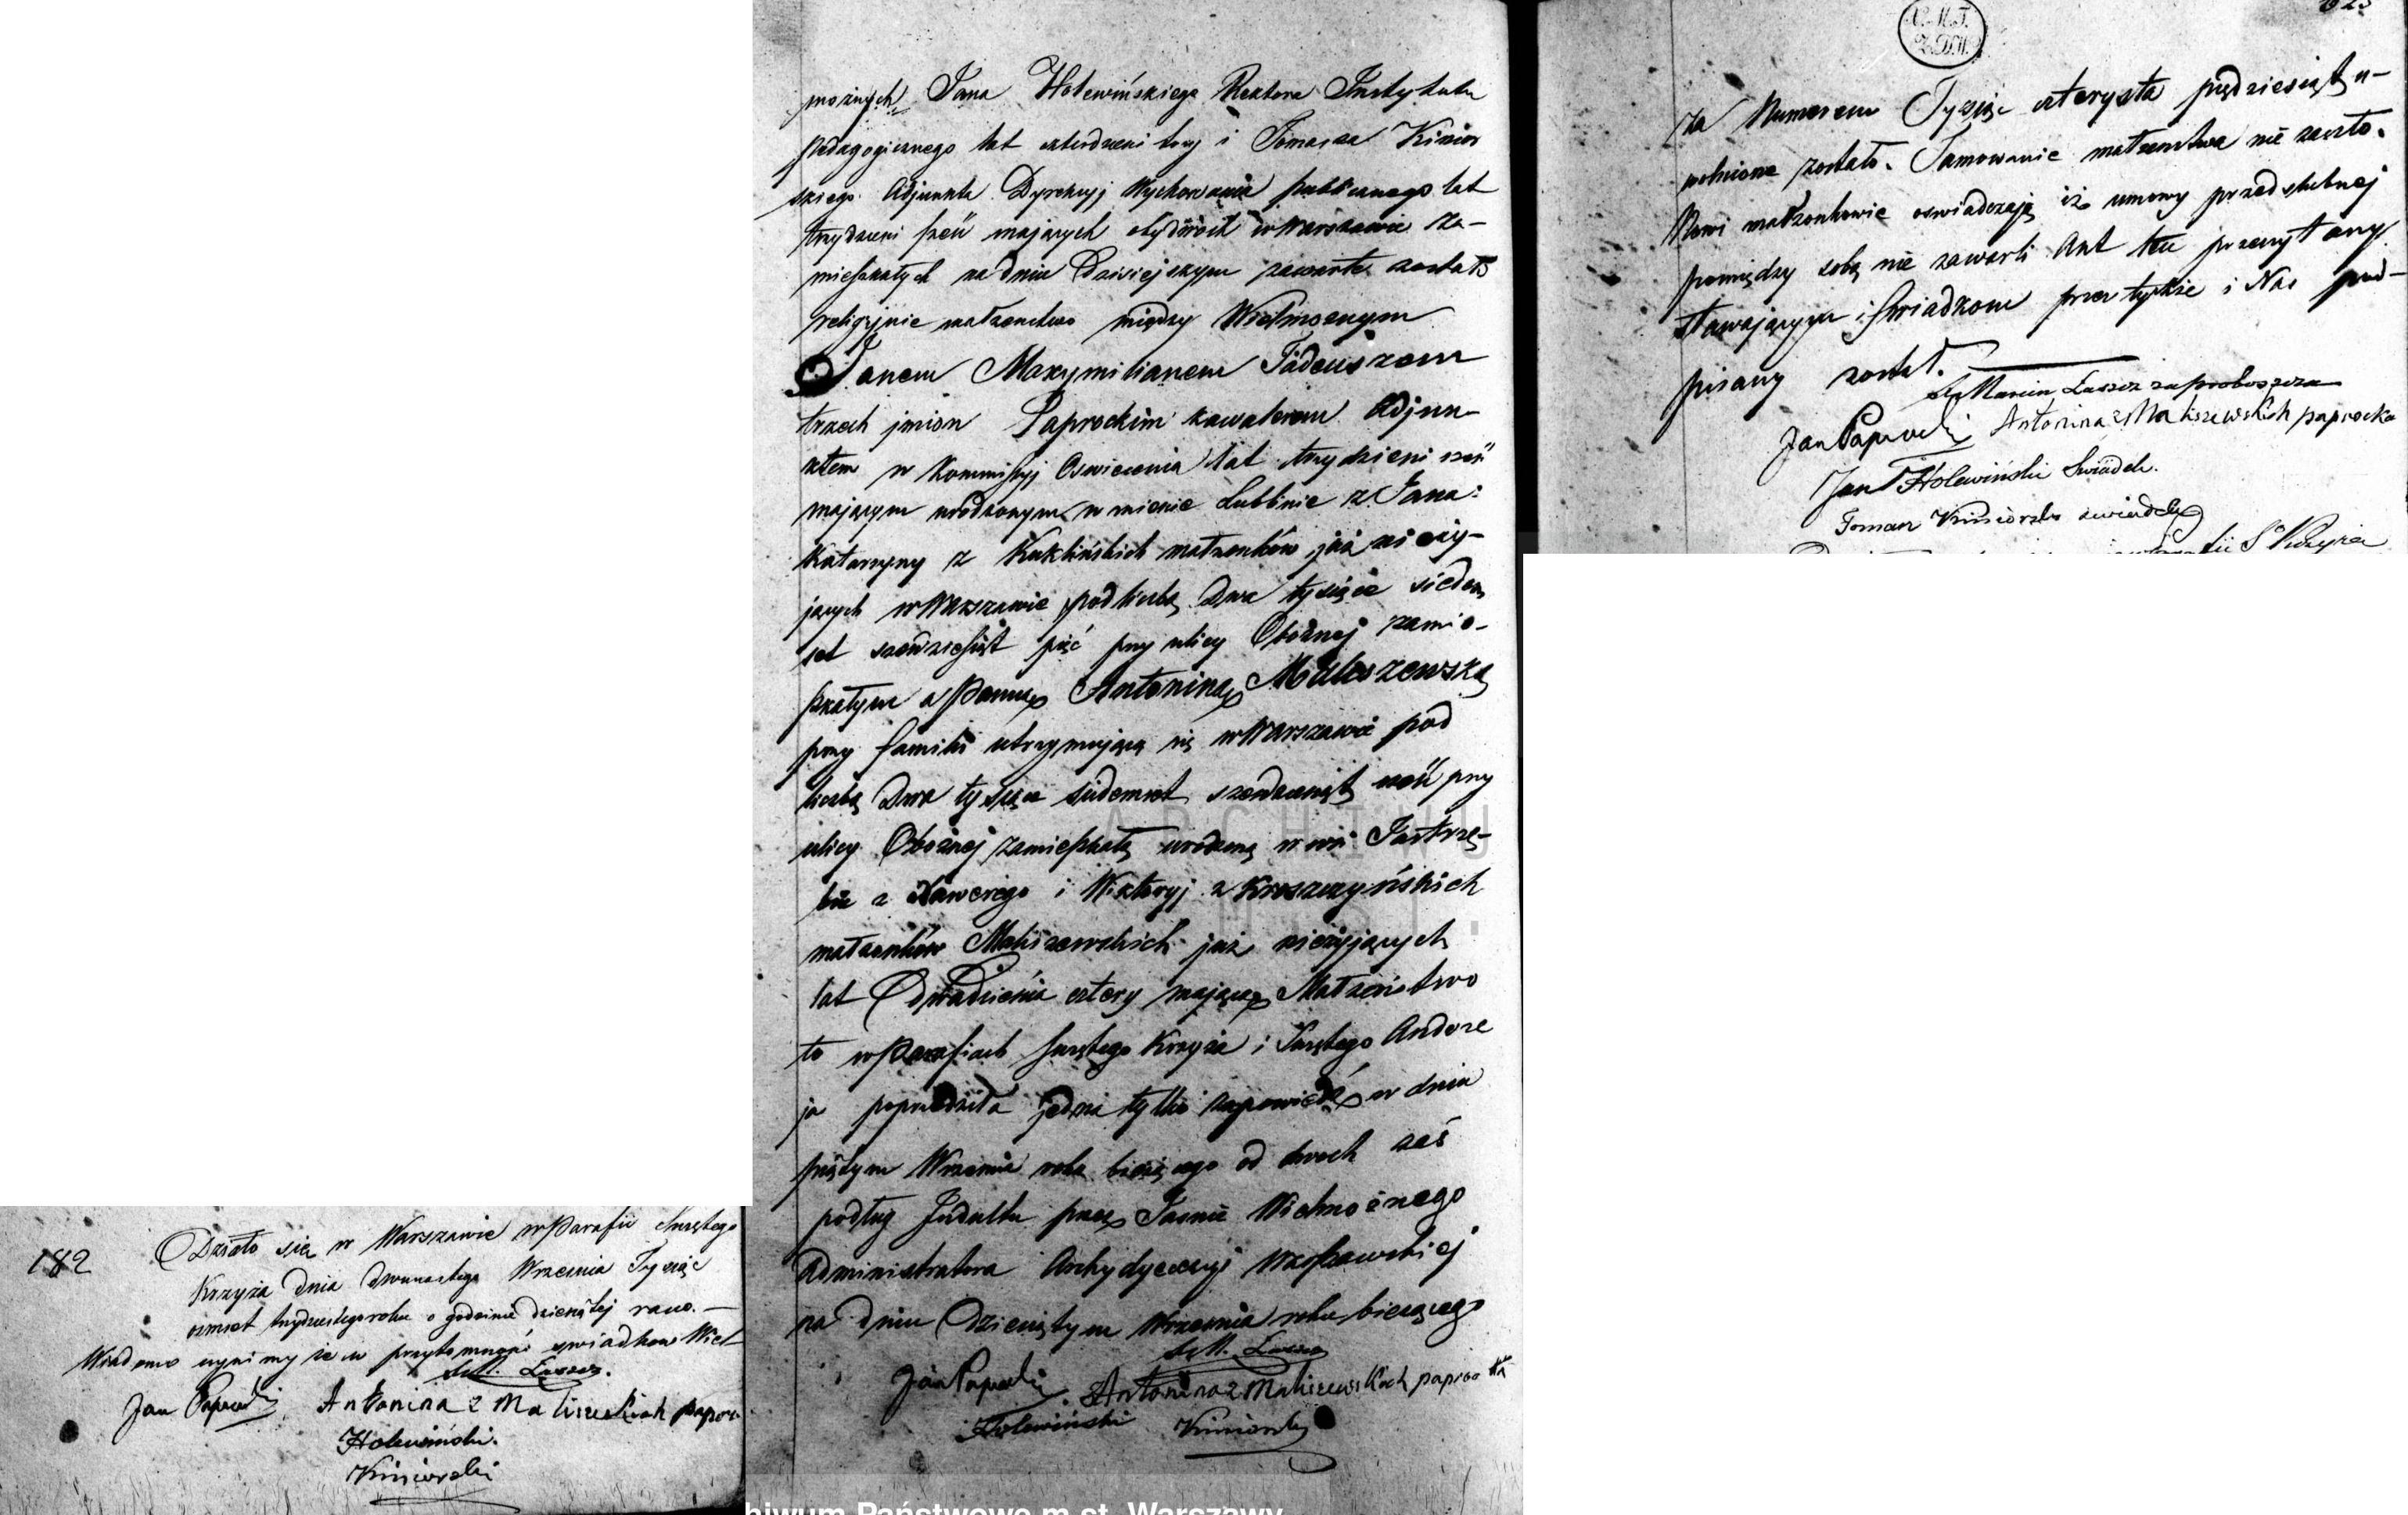 182
Działo się w Warszawie w Parafii Swiętego
Krzyża dnia dwunastego Września Tysiąc
osmset trzydziestego roku o godzinie dziesiątej rano. —
Wiadomo czynimy że w przytomności swiadkow Wiel-
X M. Łaszcz.
Jan Paprocki Antonina z Maliszewskich paproc
Hołowiński.
Kiniorski
możnych Jana Hołowińskiego Rektora Instytutu
Pedagogicznego lat czterdzieści trzy i Tomasza Kinior
skiego Adjunkta Dyrekcyj Wychowania publicznego lat
trzydzieści sześć mających obydwóch w Warszawie za-
mieszkałych na dniu dzisiejszym zawarte zostało
religijnie małżeństwo między Wielmożnym
Janem Maxymilianem Tadeuszem
trzech jmion Paprockim kawalerem Adjun-
ktem w Kommissyj Oswiecenia lat trzydzieści sześć
mającym urodzonym w miescie Lublinie z Jana i
Katarzyny z Kuklińskich małżonków już nie ży-
jących w Warszawie pod liczbą Dwa tysiące siedem
set szesdziesiąt pięć przy ulicy Oboznej zamie-
szkałym a Panną Antoniną Maliszewską
przy familii utrzymującą się w Warszawie pod
liczbą Dwa tysiące siedemset szesdziesiąt sześć przy
ulicy Oboźnej zamieszkałą urodzoną w wsi Jastrzę-
biu z Xawerego i Wiktoryj z Kroszczyńskich
małżonków Maliszewskich już nieżyjących
lat dwadzieścia cztery mającą Małżeństwo
to w Parafiach Swiętego Krzyża i Swiętego Andrze
ja poprzedziła jedna tylko zapowiedź w dniu
piątym Września roku bieżącego od dwoch zaś
podług Indultu przez Jasnie Wielmożnego
Administratora Archydyecezyj Warszawskiej
na dniu dziesiątym Września roku bieżącego
X M. Łaszcz
Jan Paprocki Antonina z Maliszewskich paprocka
Hołowiński Kiniorski
za Numerem Tysiąc czterysta pięćdziesiąt u-
wolnione zostało. Tamowanie małżeństwa nie zaszło.
Nowi małżonkowie oswiadczają iż umowy przedslubnej
pomiędzy sobą nie zawarli Akt ten przeczytany
stawającym i swiadkom przez tychże i Nas pod-
pisany został.
X Marcin Łaszcz za proboszcza
Jan Paprocki Antonina z Maliszewskich paprocka
Jan Hołowiński Swiadek.
Tomasz Kiniorski swiadek
ARCHIWU
hiwum Państwowe m.st. Warszawy